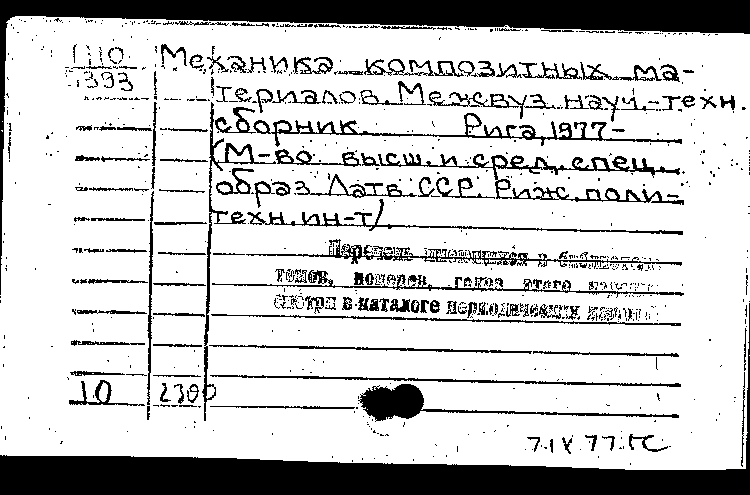 П10 Механика композитных ма-
393 териалов. Межвуз. науч.-техн.
сборник. Рига, 1977-
(М-во высш. и сред. спец.
образ. Латв. ССР. Риж. поли-
техн. ин-т).
Перечень имеющихся в библиотеке
томов, номеров, годов этого
смотри в каталоге периодических
10 2300
7.IX 77. ГС